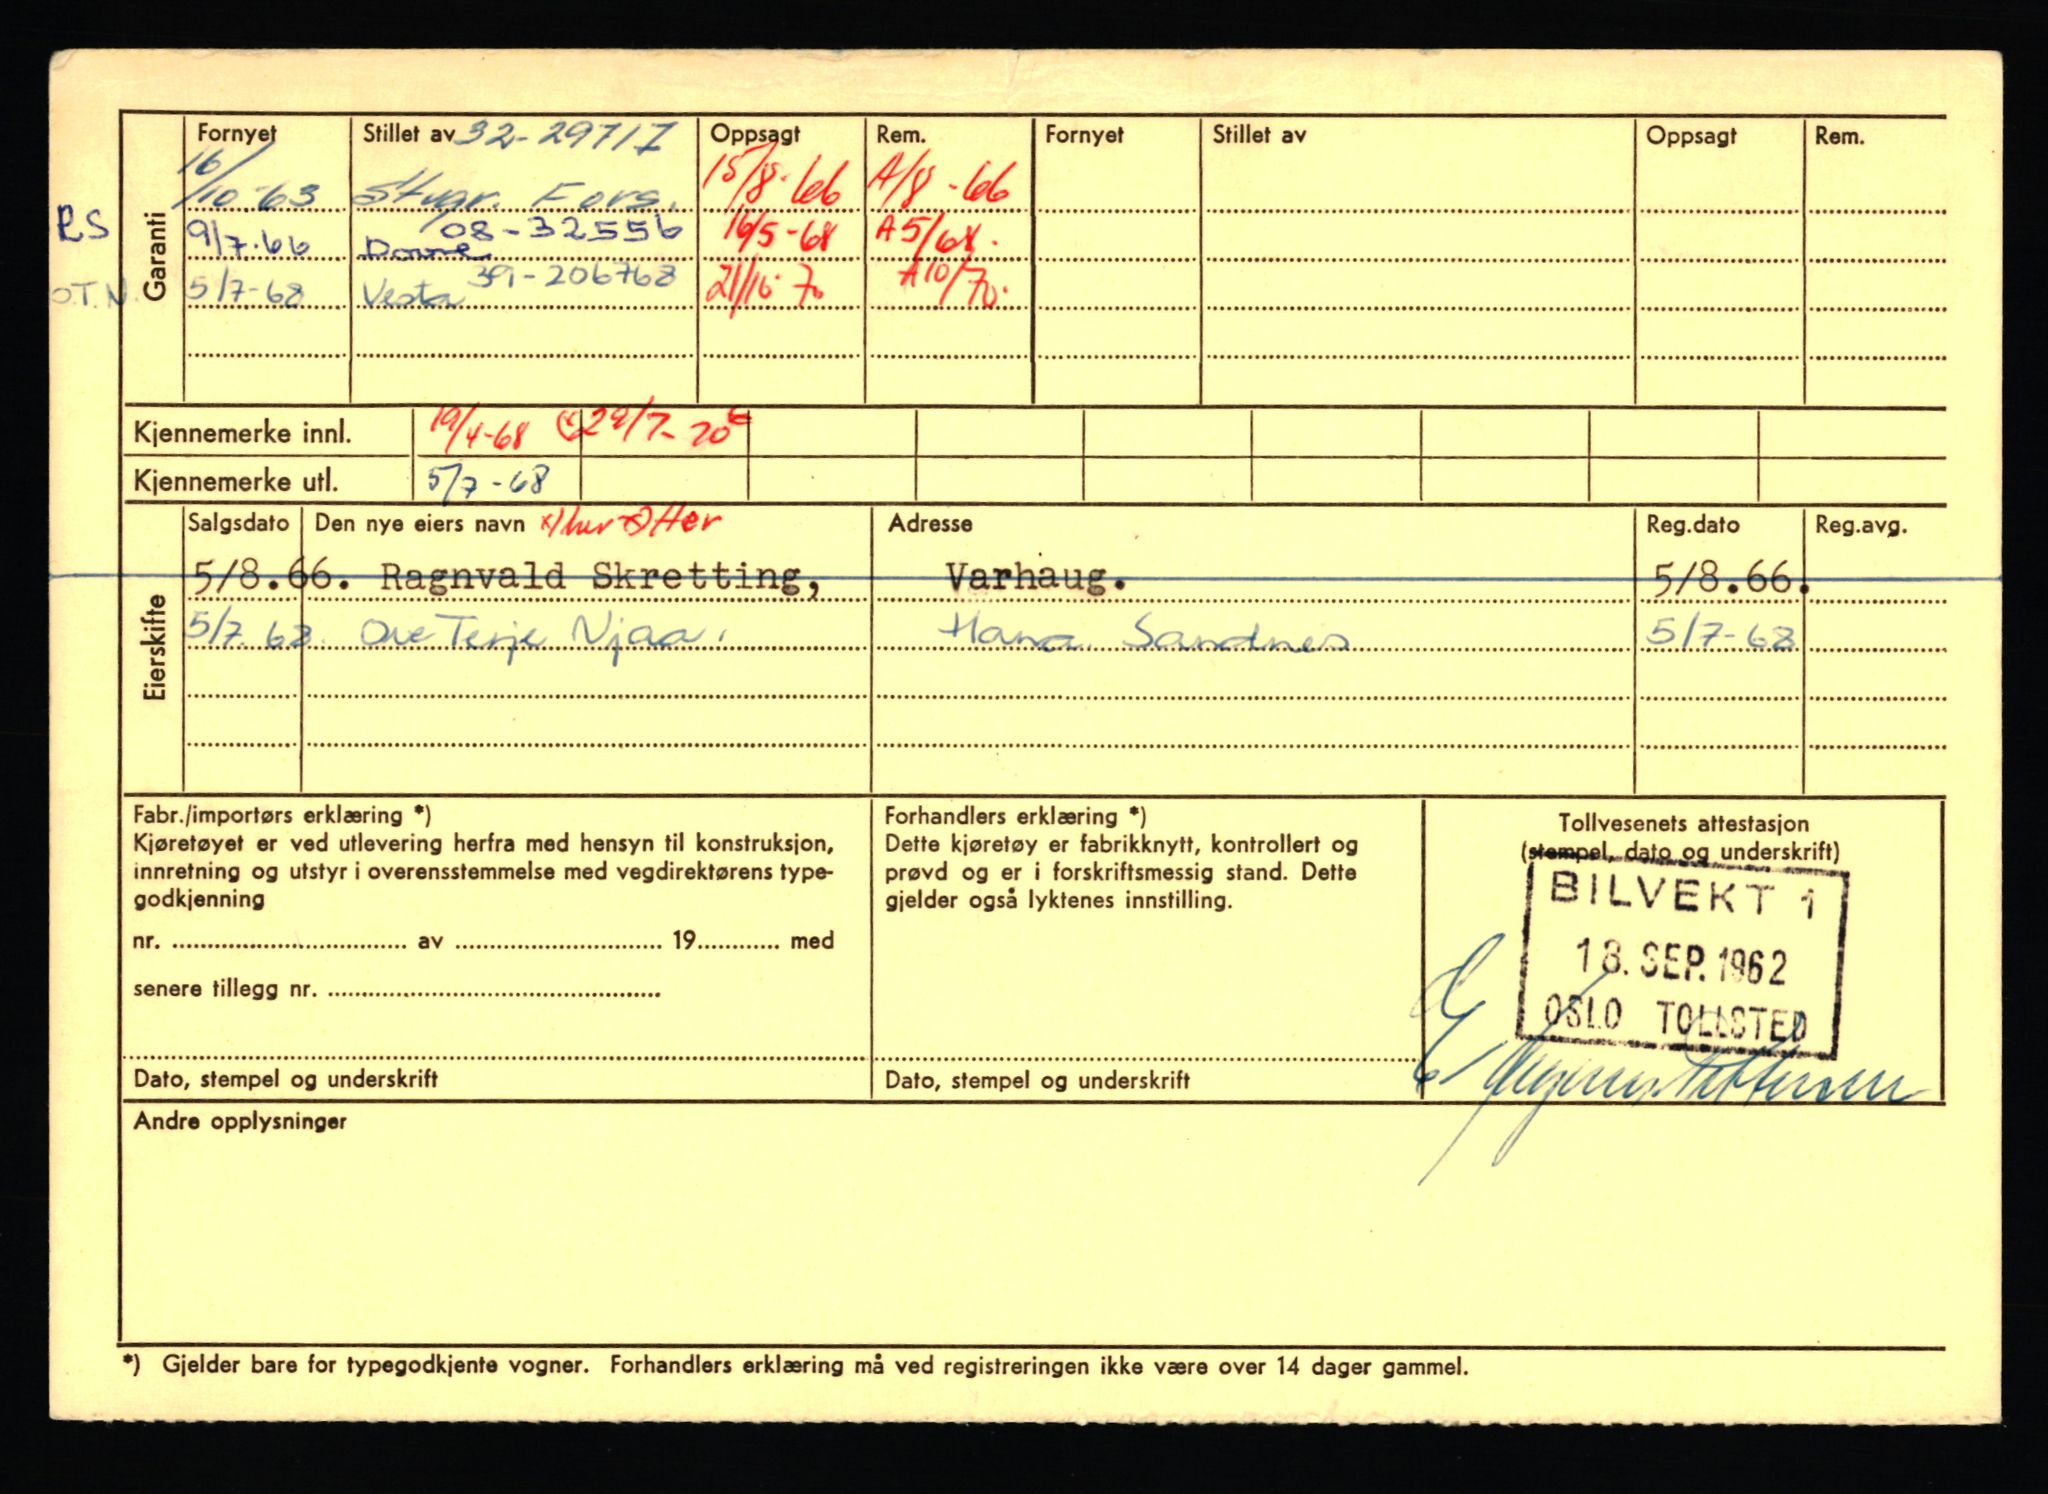 Garanti
Fornyet Stillet av 32-29717 Oppsagt Rem. Fornyet Stillet av Oppsagt Rem.
16/10-63 Fors. 15/8-66 A/8-66
RS 9/7-66 08-32556 16/5-68 A5/68.
O.T.N. 5/7-68 Vesta 39-206768 21/10-70 A10/70.
Kjennemerke innl. 19/4-68 29/7-70
Kjennemerke utl. 5/7-68
Eierskifte
Salgsdato Den nye eiers navn Adresse Reg.dato Reg.avg.
5/8.66. Ragnvald Skretting, Varhaug. 5/8.66.
5/7.68. Ove Terje Njaa. Hana Sandnes 5/7-68
Fabr./importørs erklæring *)
Kjøretøyet er ved utlevering herfra med hensyn til konstruksjon,
innretning og utstyr i overensstemmelse med vegdirektørens type-
godkjenning
nr. ........ av ........ 19........ med
senere tillegg nr. ........
Dato, stempel og underskrift
Forhandlers erklæring *)
Dette kjøretøy er fabrikknytt, kontrollert og
prøvd og er i forskriftsmessig stand. Dette
gjelder også lyktenes innstilling.
Dato, stempel og underskrift
Tollvesenets attestasjon
(stempel, dato og underskrift)
BILVEKT 1
18. SEP. 1962
OSLO TOLLSTED
Andre opplysninger
*) Gjelder bare for typegodkjente vogner. Forhandlers erklæring må ved registreringen ikke være over 14 dager gammel.